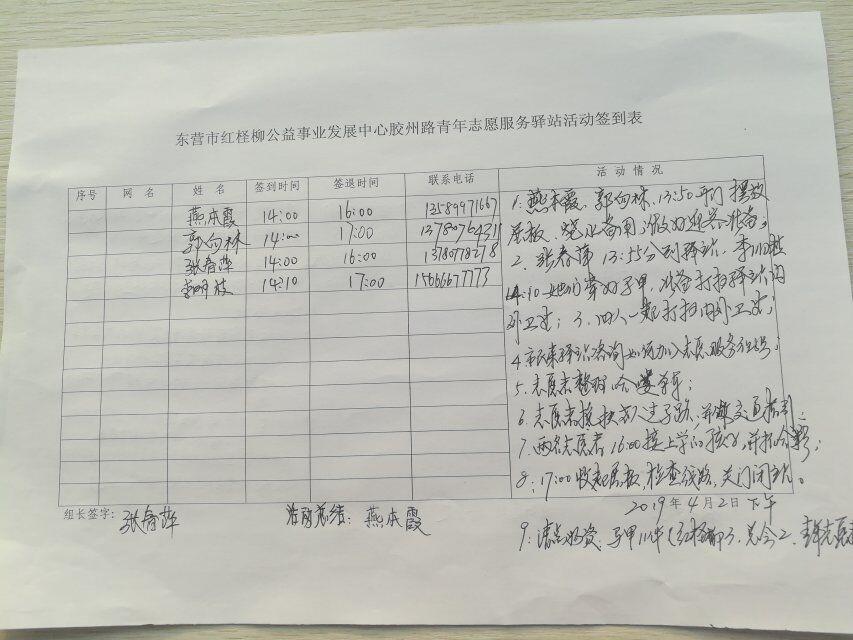 东营市红柽柳公益事业发展中心胶州路青年志愿服务驿站活动签到表
序号 网名 姓名 签到时间 签退时间 联系电话 活动情况
燕本霞 14:00 16:00 13589971667
郭向林 14:00 17:00
张春萍 14:00 16:00 1378078278
李明枝 14:10 17:00 15666677773
1. 燕本霞、郭向林、13:50开门 摆放
展板、烧水备用，做好迎客准备；
2、张春萍 13:55分到驿站、李明枝
14:10 她们穿好马甲，准备打扫驿站内
外卫生；3、四人一起打扫内外卫生；
4 市民来驿站咨询如何加入志愿服务组织；
5. 志愿者整理
6. 志愿者搀扶老人过马路，并做交通指引；
7. 两名志愿者16:00接上学的孩子，并
8: 17:00收起展板、检查线路、关门闭站。
组长签字: 张春萍 活动总结: 燕本霞 2019年4月2日下午
9: 清点物资、马甲11件（红柽柳3、总会2、青年志愿